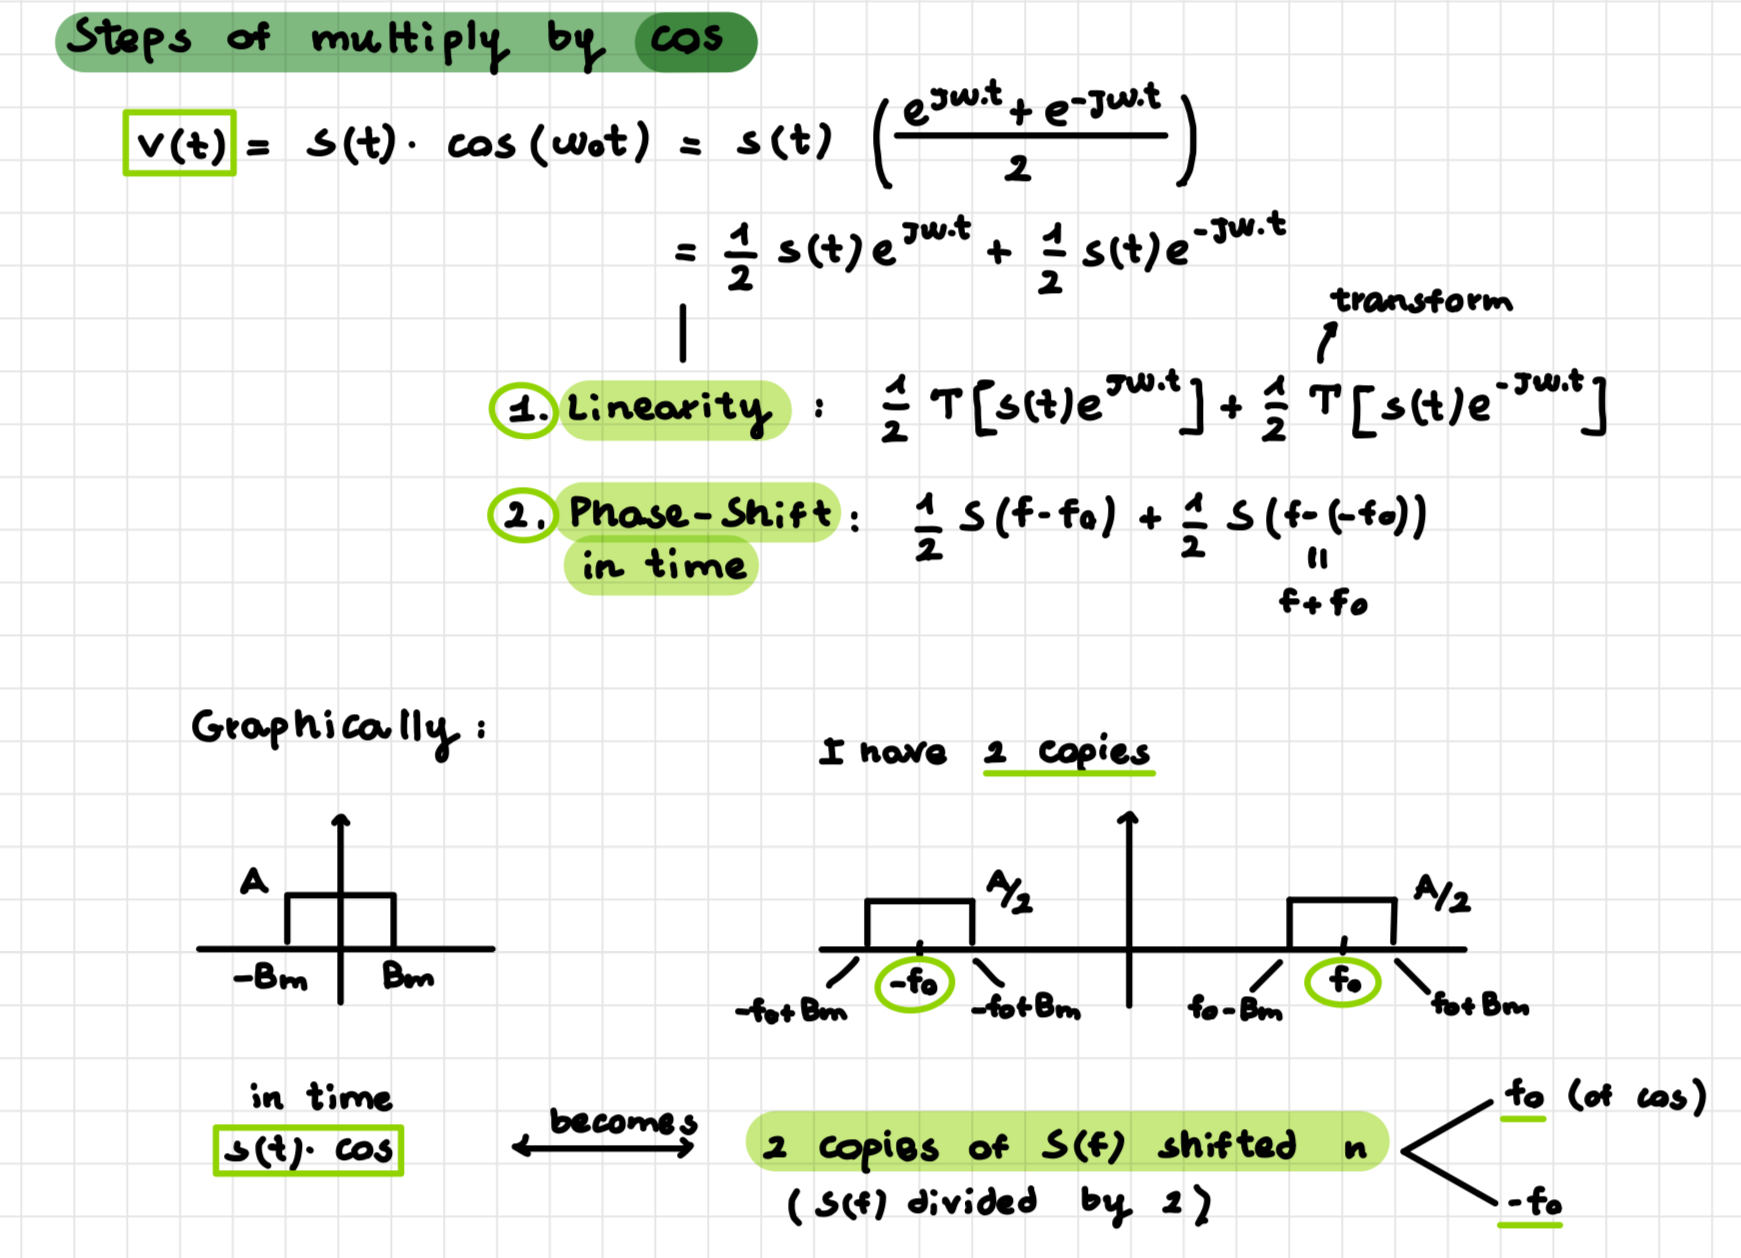 Steps of multiply by cos
v(t) = s(t) · cos(ω₀t) = s(t) ( (e^jω.t + e^-jω.t) / 2 )
= 1/2 s(t) e^jω.t + 1/2 s(t) e^-jω.t
transform
1. Linearity : 1/2 T[s(t)e^jω.t] + 1/2 T[s(t)e^-jω.t]
2. Phase-Shift : 1/2 S(f-f₀) + 1/2 S(f-(-f₀))
in time
=
f+f₀
Graphically :
I have 2 copies
A
-Bm Bm
A/2 A/2
-f₀+Bm -f₀ -f₀+Bm f₀-Bm f₀ f₀+Bm
in time
s(t) · cos
becomes
2 copies of S(f) shifted n
(S(f) divided by 2)
f₀ (of cos)
-f₀